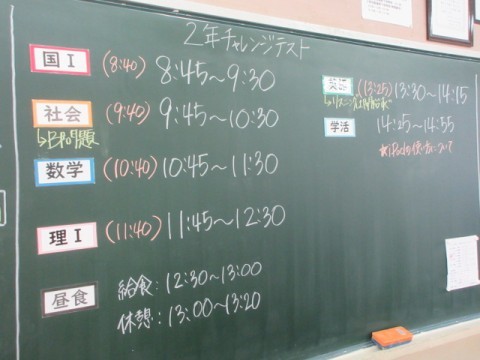 2年チャレンジテスト
国Ⅰ (8:40) 8:45～9:30
社会 (9:40) 9:45～10:30
↳B問題
数学 (10:40) 10:45～11:30
理Ⅰ (11:40) 11:45～12:30
昼食 給食:12:30～13:00
休憩:13:00～13:20
英語 (13:25) 13:30～14:15
↳リスニング
学活 14:25～14:55
※iPadの使い方について